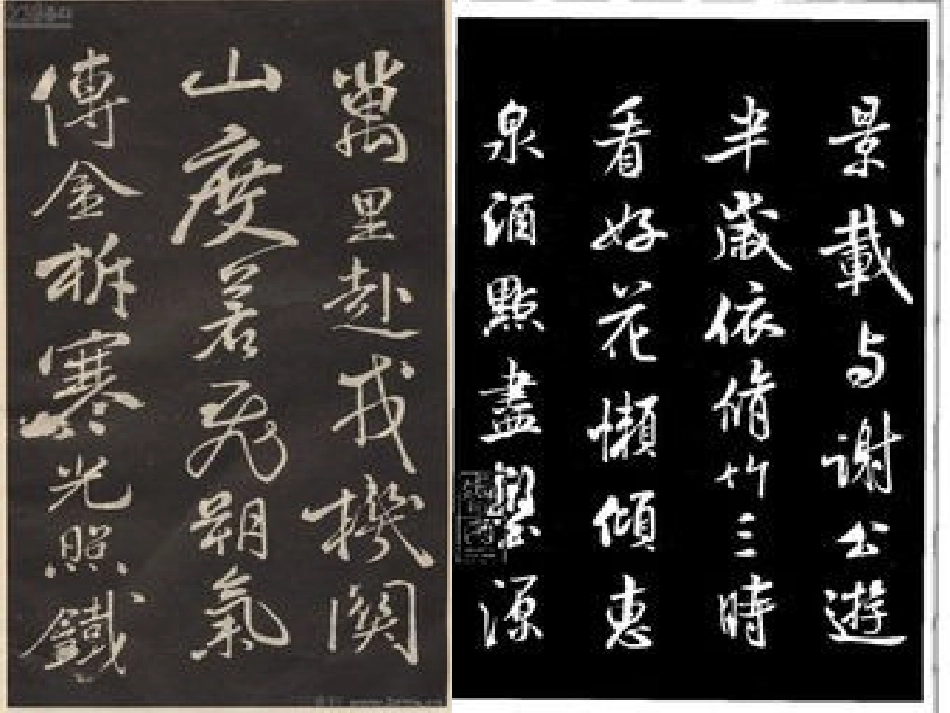 萬里赴戎機關
山度若飛朔氣
傳金柝寒光照鐵
景載与謝公遊
半歲依脩竹三時
看好花懶傾惠
泉酒點盡壑源